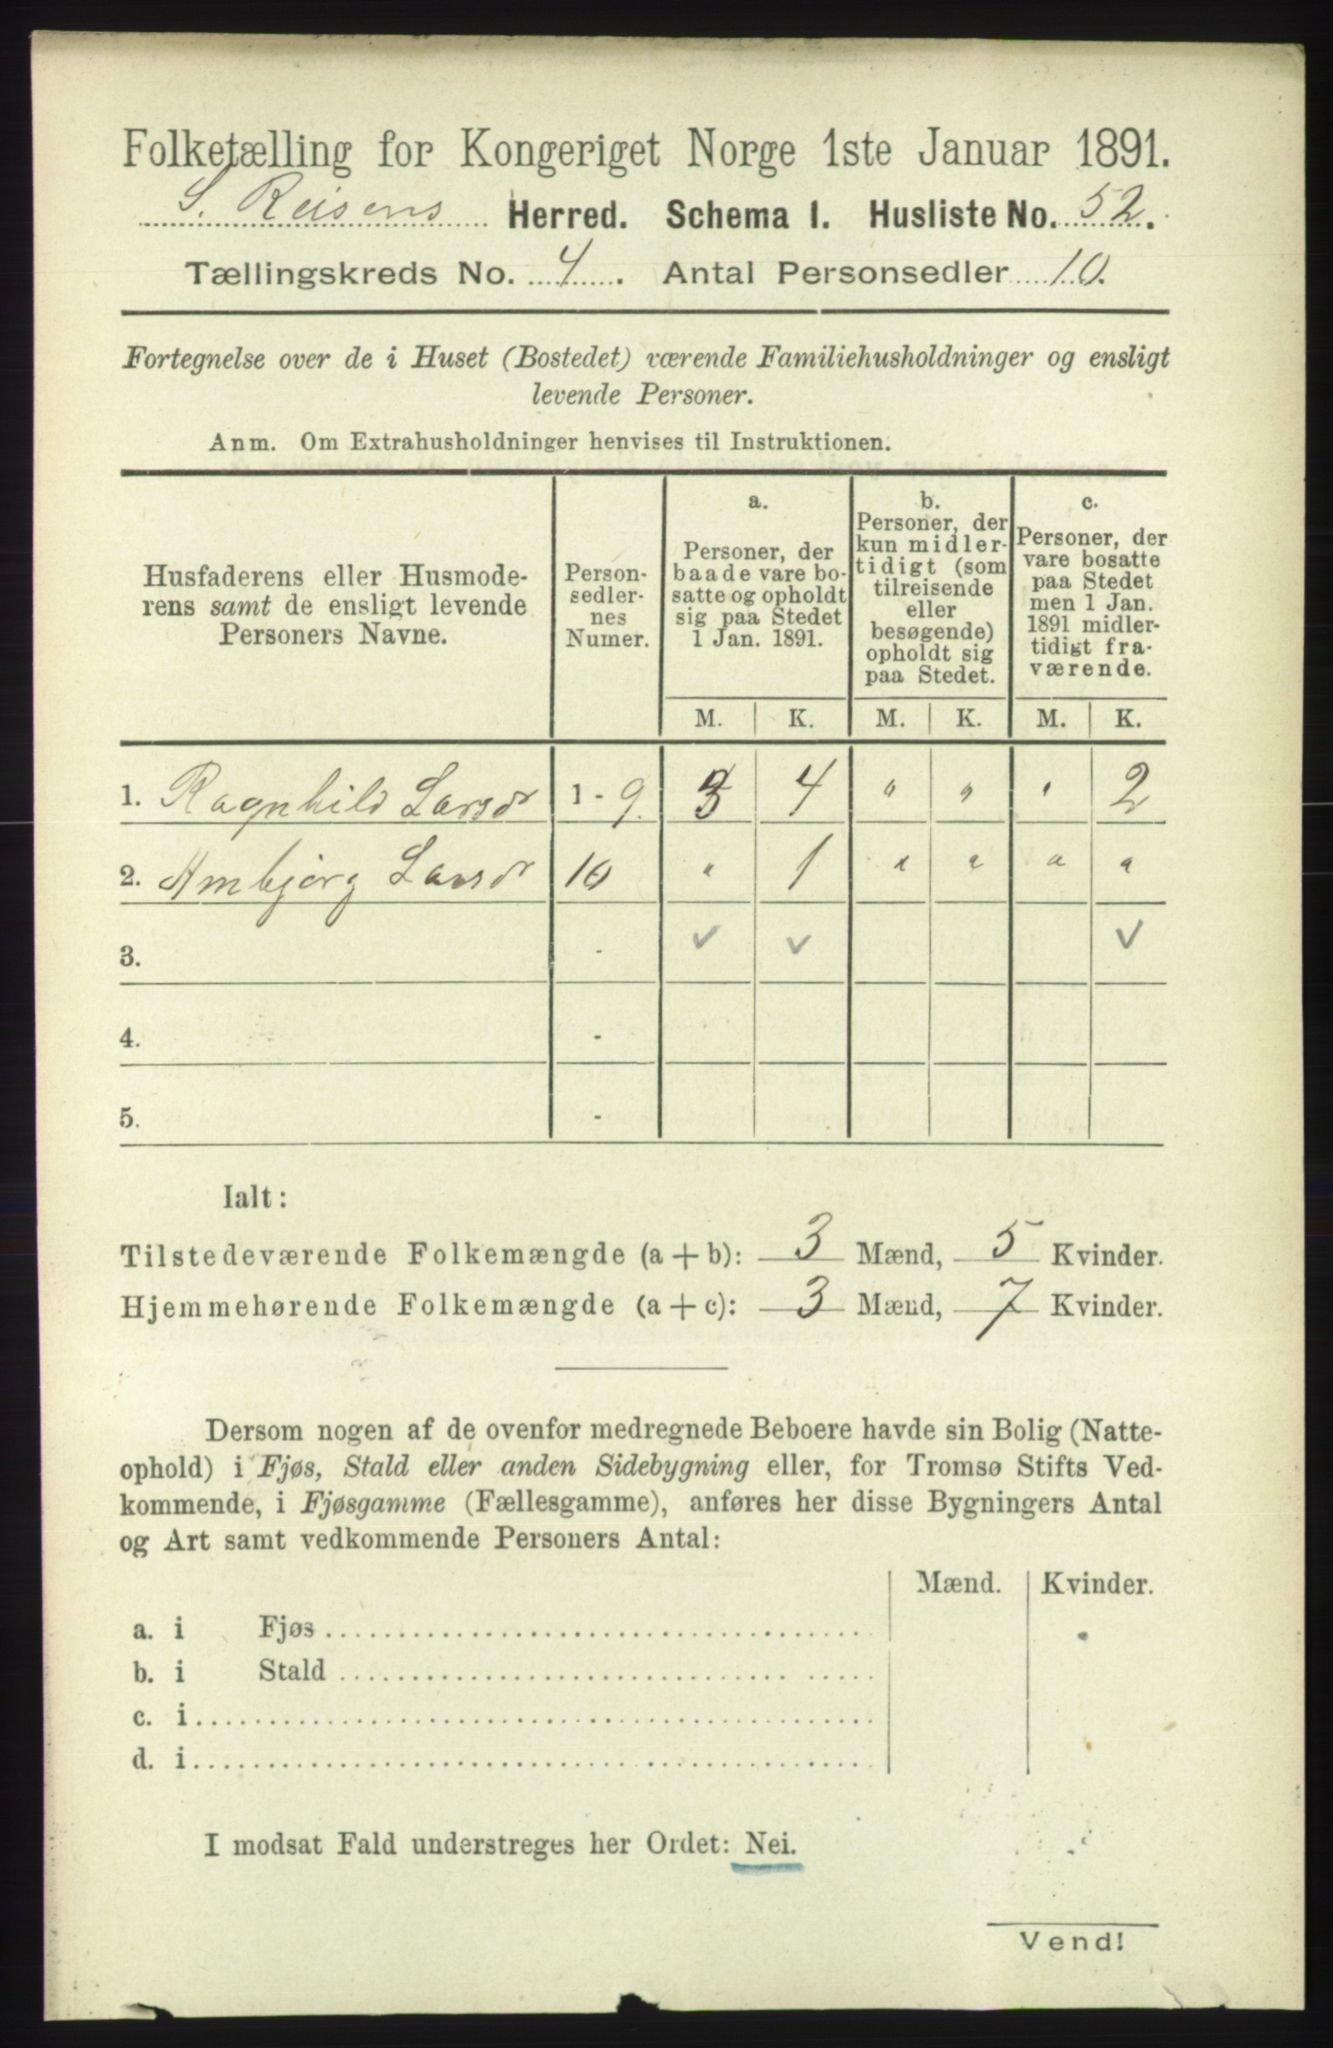 Folketælling for Kongeriget Norge 1ste Januar 1891.
S. Reisens Herred. Schema I. Husliste No. 52.
Tællingskreds No. 4. Antal Personsedler 10.
Fortegnelse over de i Huset (Bostedet) værende Familiehusholdninger og ensligt
levende Personer.
Anm. Om Extrahusholdninger henvises til Instruktionen.
Husfaderens eller Husmode-
rens samt de ensligt levende
Personers Navne.
Person-
sedler-
nes
Numer.
a.
Personer, der
baade vare bo-
satte og opholdt
sig paa Stedet
1 Jan. 1891.
b.
Personer, der
kun midler-
tidigt (som
tilreisende
eller
besøgende)
opholdt sig
paa Stedet.
c.
Personer, der
vare bosatte
paa Stedet
men 1 Jan.
1891 midler-
tidigt fra-
værende.
M. K. M. K. M. K.
1. Ragnhild Larsdr 1 - 9. 3 4 " " " 2
2. Ambjørg Larsdr 10 " 1 " " " "
3. - ✓ ✓ ✓
4. -
5. -
Ialt:
Tilstedeværende Folkemængde (a + b): 3 Mænd, 5 Kvinder.
Hjemmehørende Folkemængde (a + c): 3 Mænd, 7 Kvinder.
Dersom nogen af de ovenfor medregnede Beboere havde sin Bolig (Natte-
ophold) i Fjøs, Stald eller anden Sidebygning eller, for Tromsø Stifts Ved-
kommende, i Fjøsgamme (Fællesgamme), anføres her disse Bygningers Antal
og Art samt vedkommende Personers Antal:
Mænd. Kvinder.
a. i Fjøs
b. i Stald
c. i
d. i
I modsat Fald understreges her Ordet: Nei.
Vend!